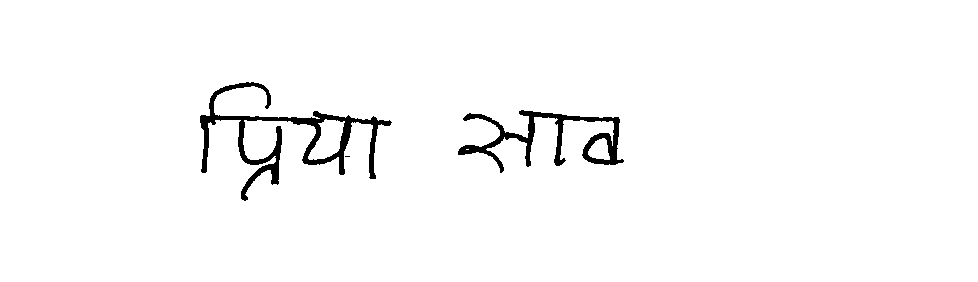 प्रिया साव